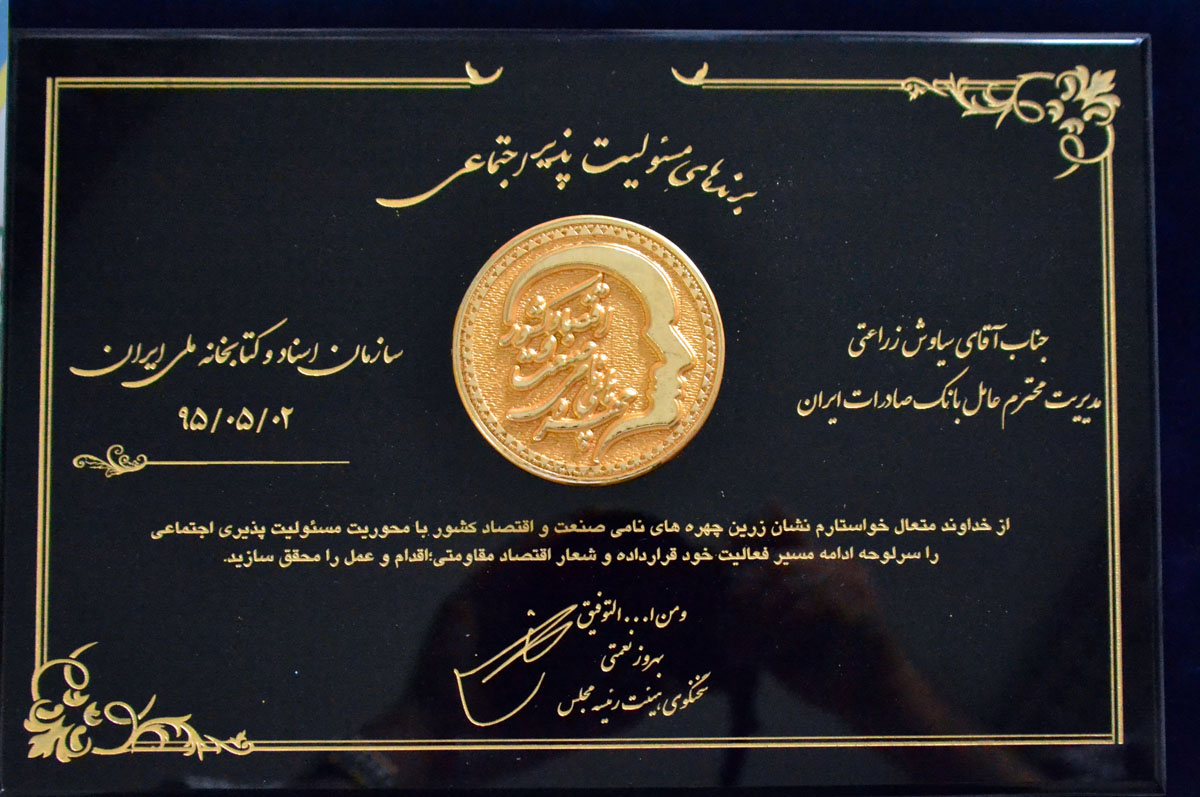 برندهای مسئولیت پذیر اجتماعی
جناب آقای سیاوش زراعتی
مدیریت محترم عامل بانک صادرات ایران
سازمان اسناد و کتابخانه ملی ایران
۹۵/۰۵/۰۲
اقتصاد کشور
صنعت و
چهره های نامی
از خداوند متعال خواستارم نشان زرین چهره های نامی صنعت و اقتصاد کشور با محوریت مسئولیت پذیری اجتماعی
را سرلوحه ادامه مسیر فعالیت خود قرارداده و شعار اقتصاد مقاومتی؛اقدام و عمل را محقق سازید.
ومن ا... التوفیق
بهروز نعمتی
سخنگوی هیئت رئیسه مجلس